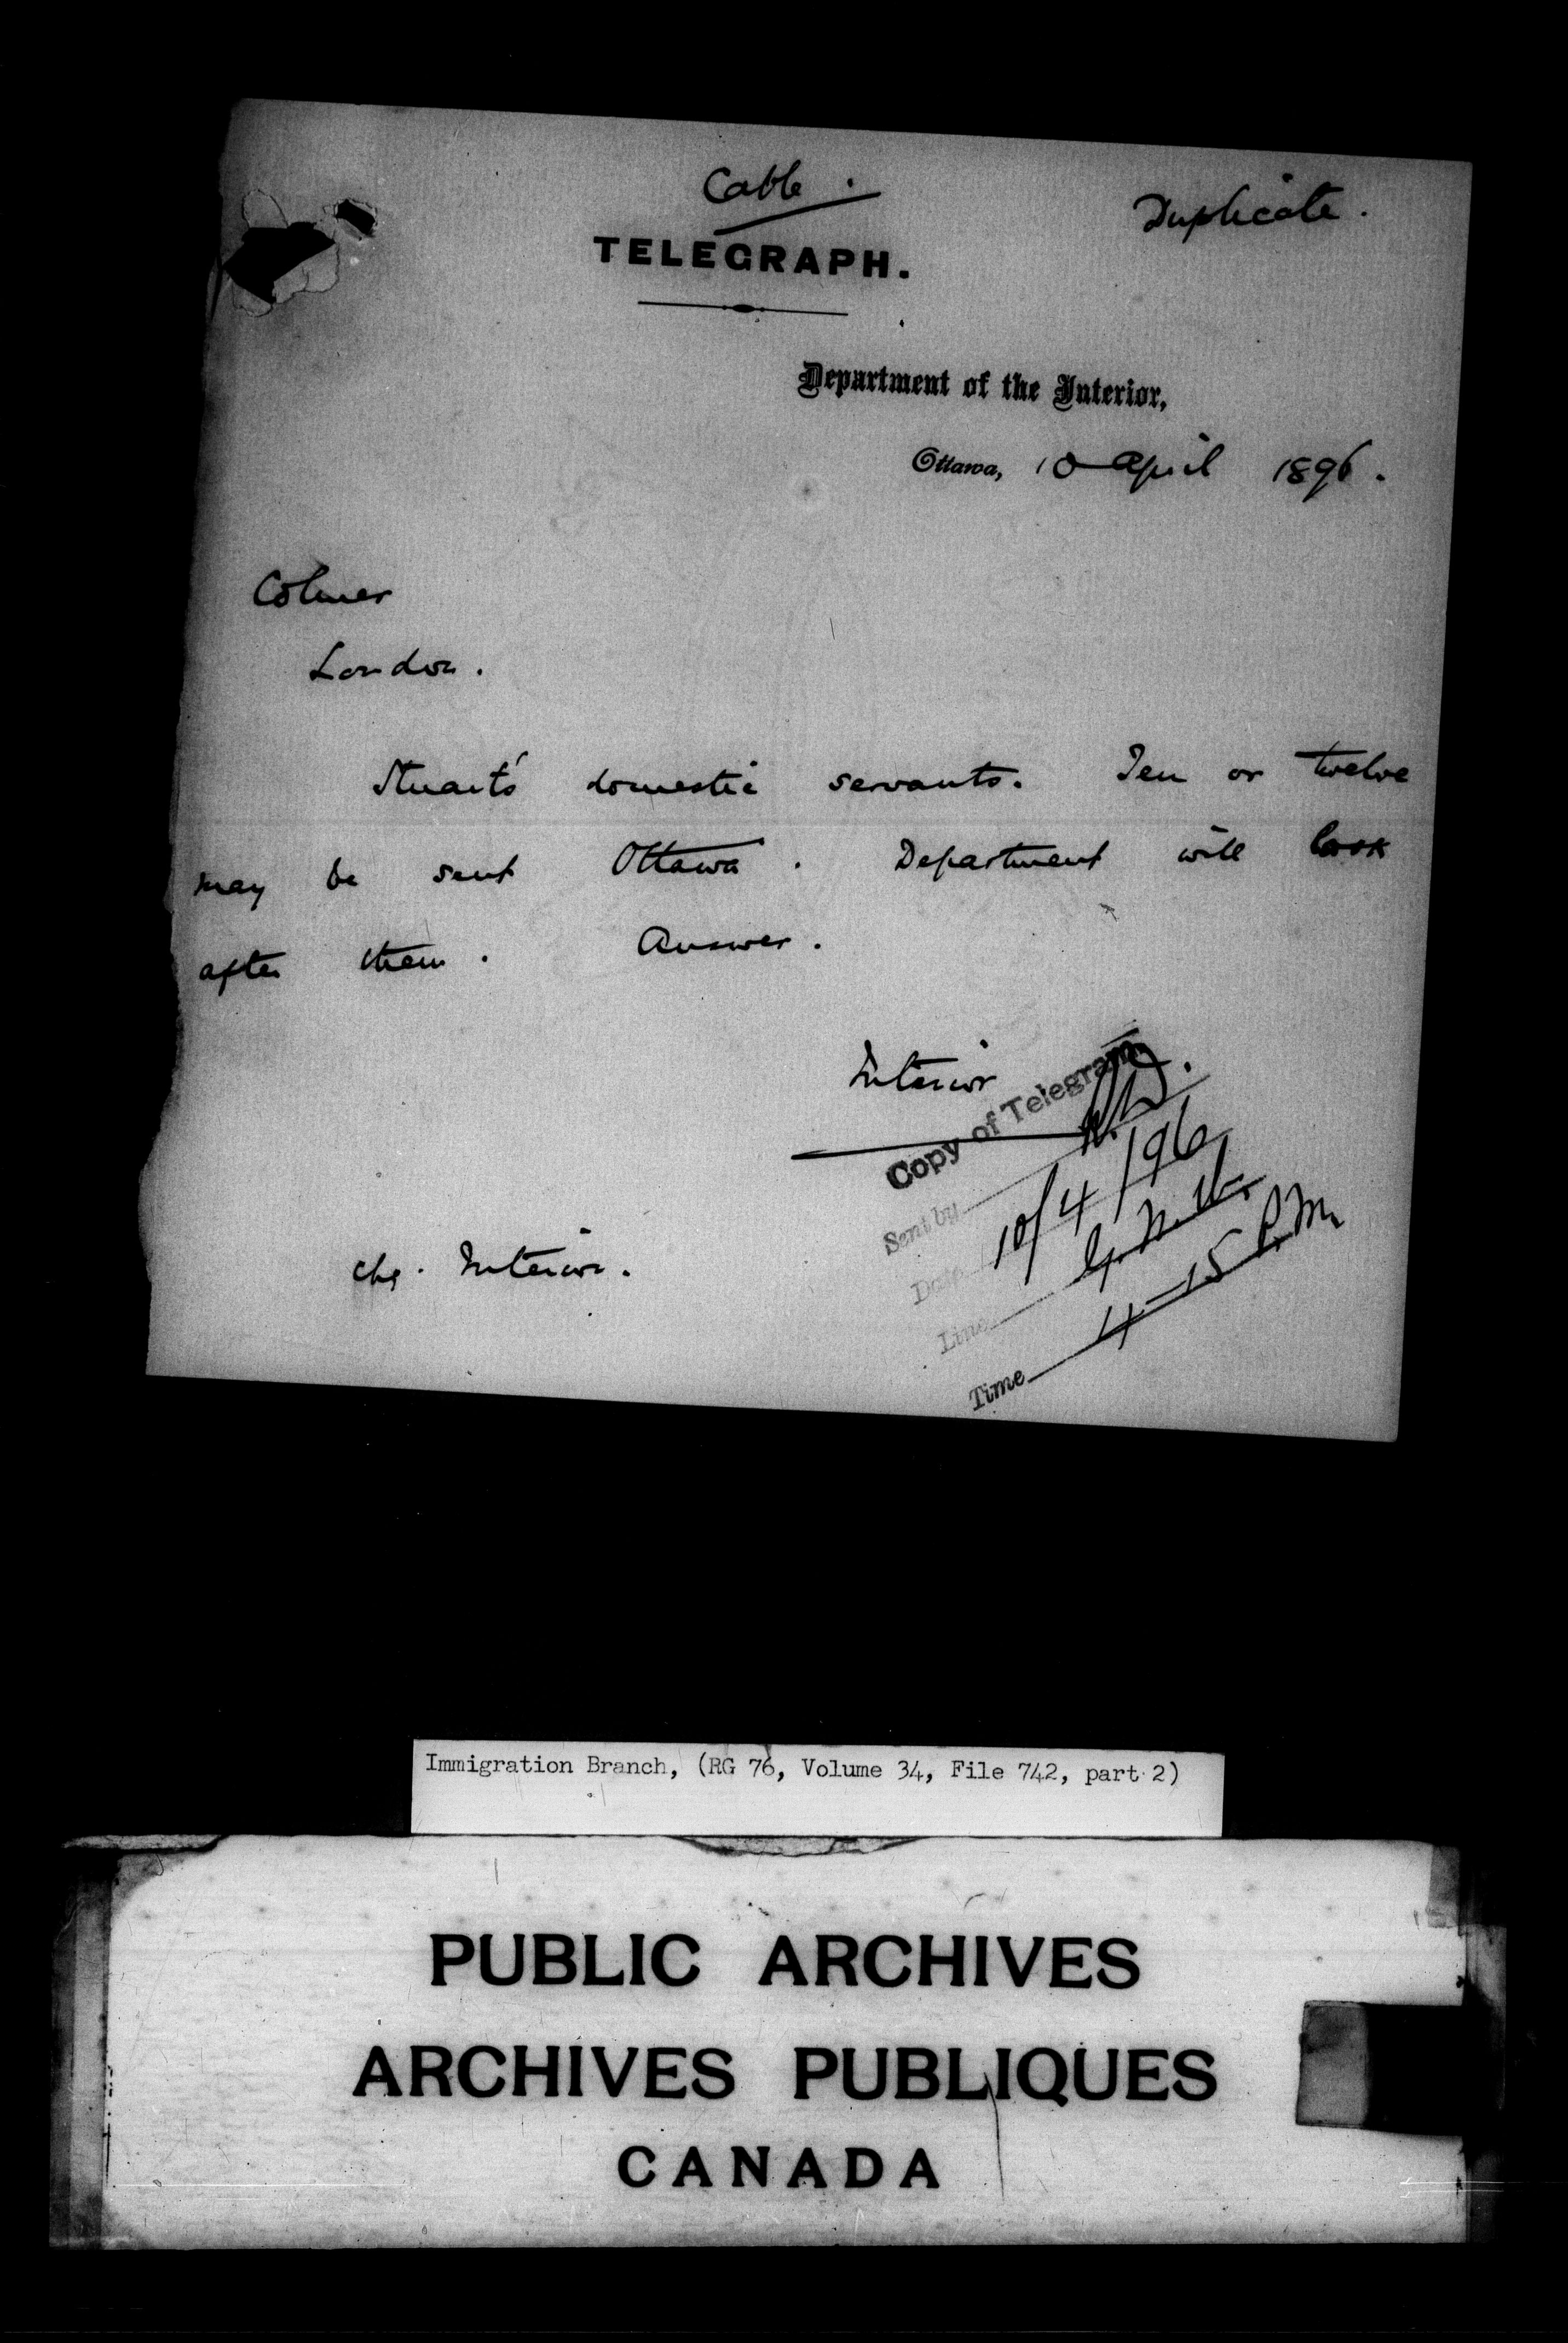 Cable.
Duplicate.
TELEGRAPH.
Department of the Interior,
Ottawa, 10 April 1896.
Colmer
London.
Stuart's domestic servants. Ten or twelve
may be sent Ottawa. Department will look
after them. Answer.
Interior
Copy of Telegram
Sent by
Date 10/4/96
Line G.N.W.
Time 4-15 P.M.
chg. Interior.
Immigration Branch, (RG 76, Volume 34, File 742, part 2)
PUBLIC ARCHIVES
ARCHIVES PUBLIQUES
CANADA